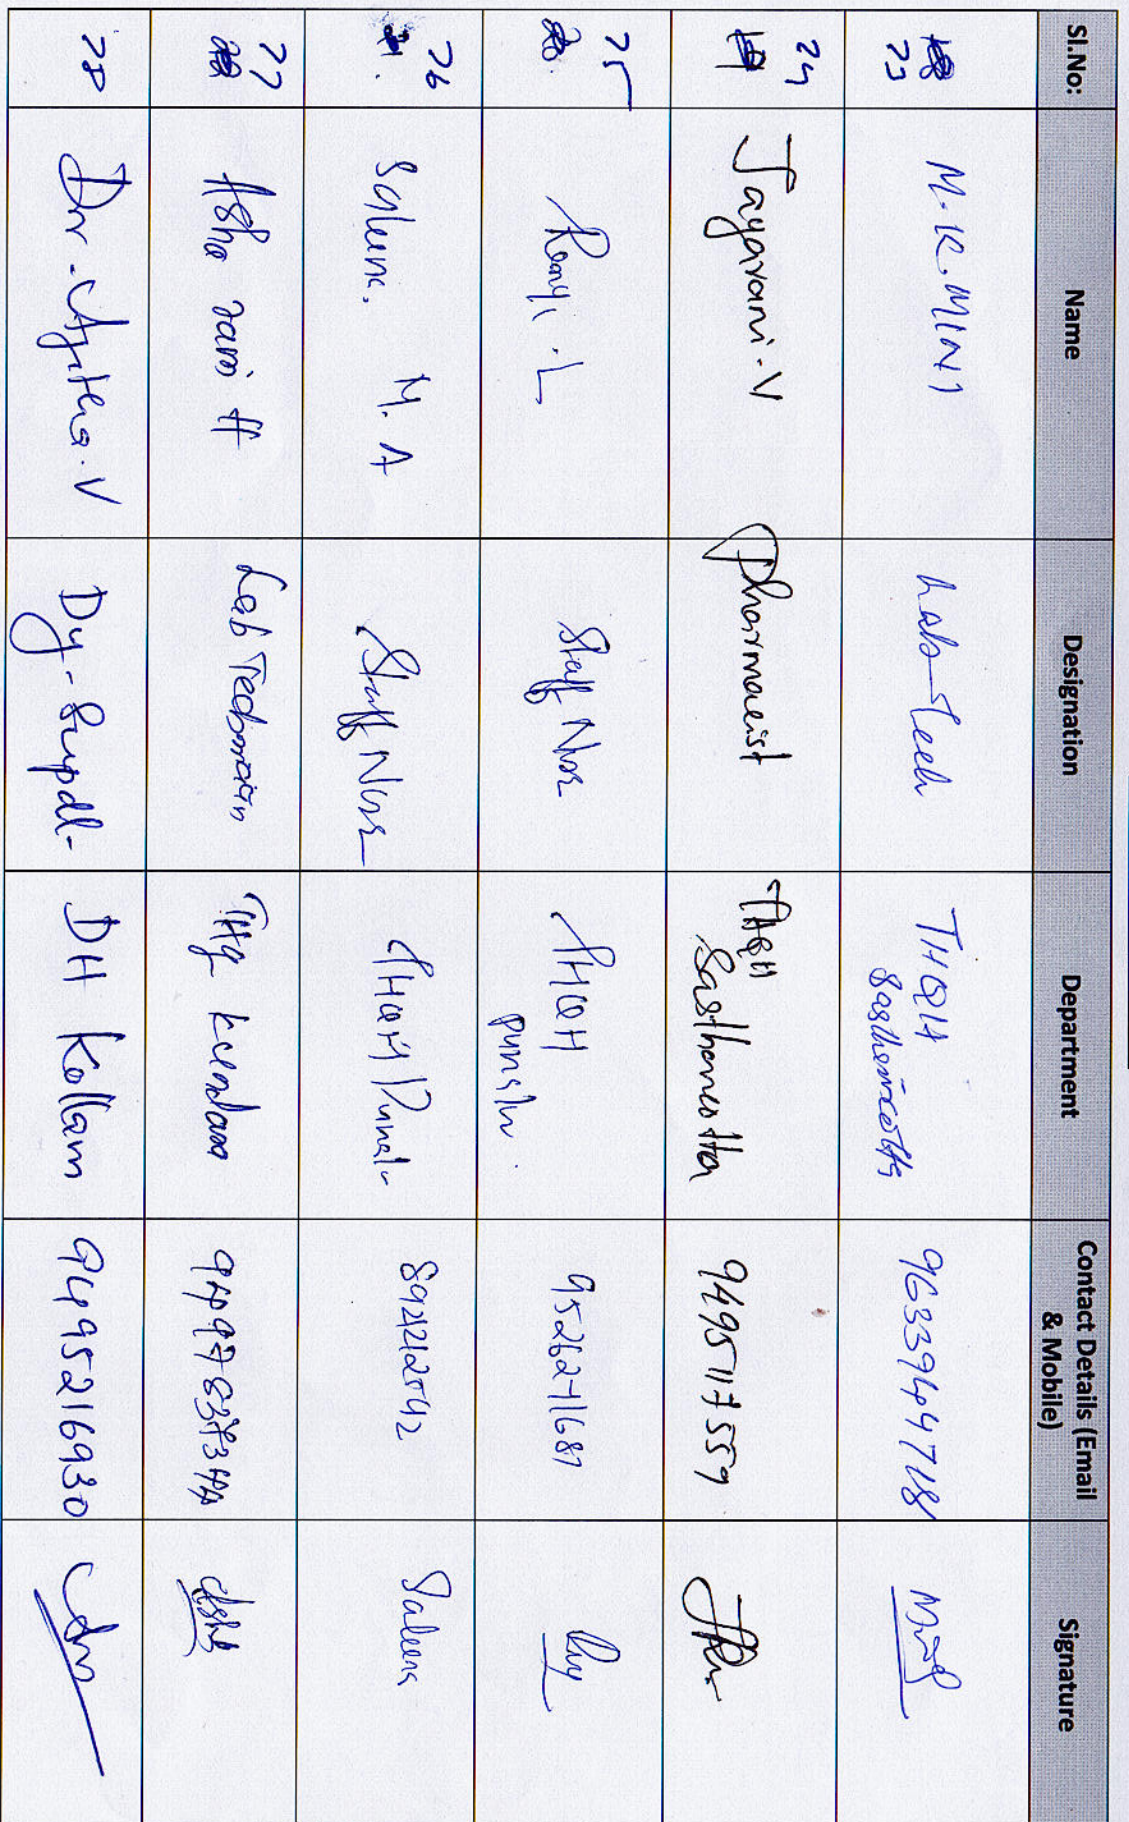 Sl.No: Name Designation Department Contact Details (Email & Mobile) Signature
23 M.K.MINI Lab Tech THQH Sasthamcotta 9633964718 Mini
24 Jayarani.V Pharmacist THQH Sasthamcotta 9495117559
25 Remyi.L Staff Nurse THQH Punalur 9526271687
26 Saleena. M.A Staff Nurse THQH Punalur 8921212542 Saleena
27 Asha rani H Lab Technician THQ kundara Asha
28 Dr.Ajitha.V Dy-Supdt- DH Kollam 9495216930